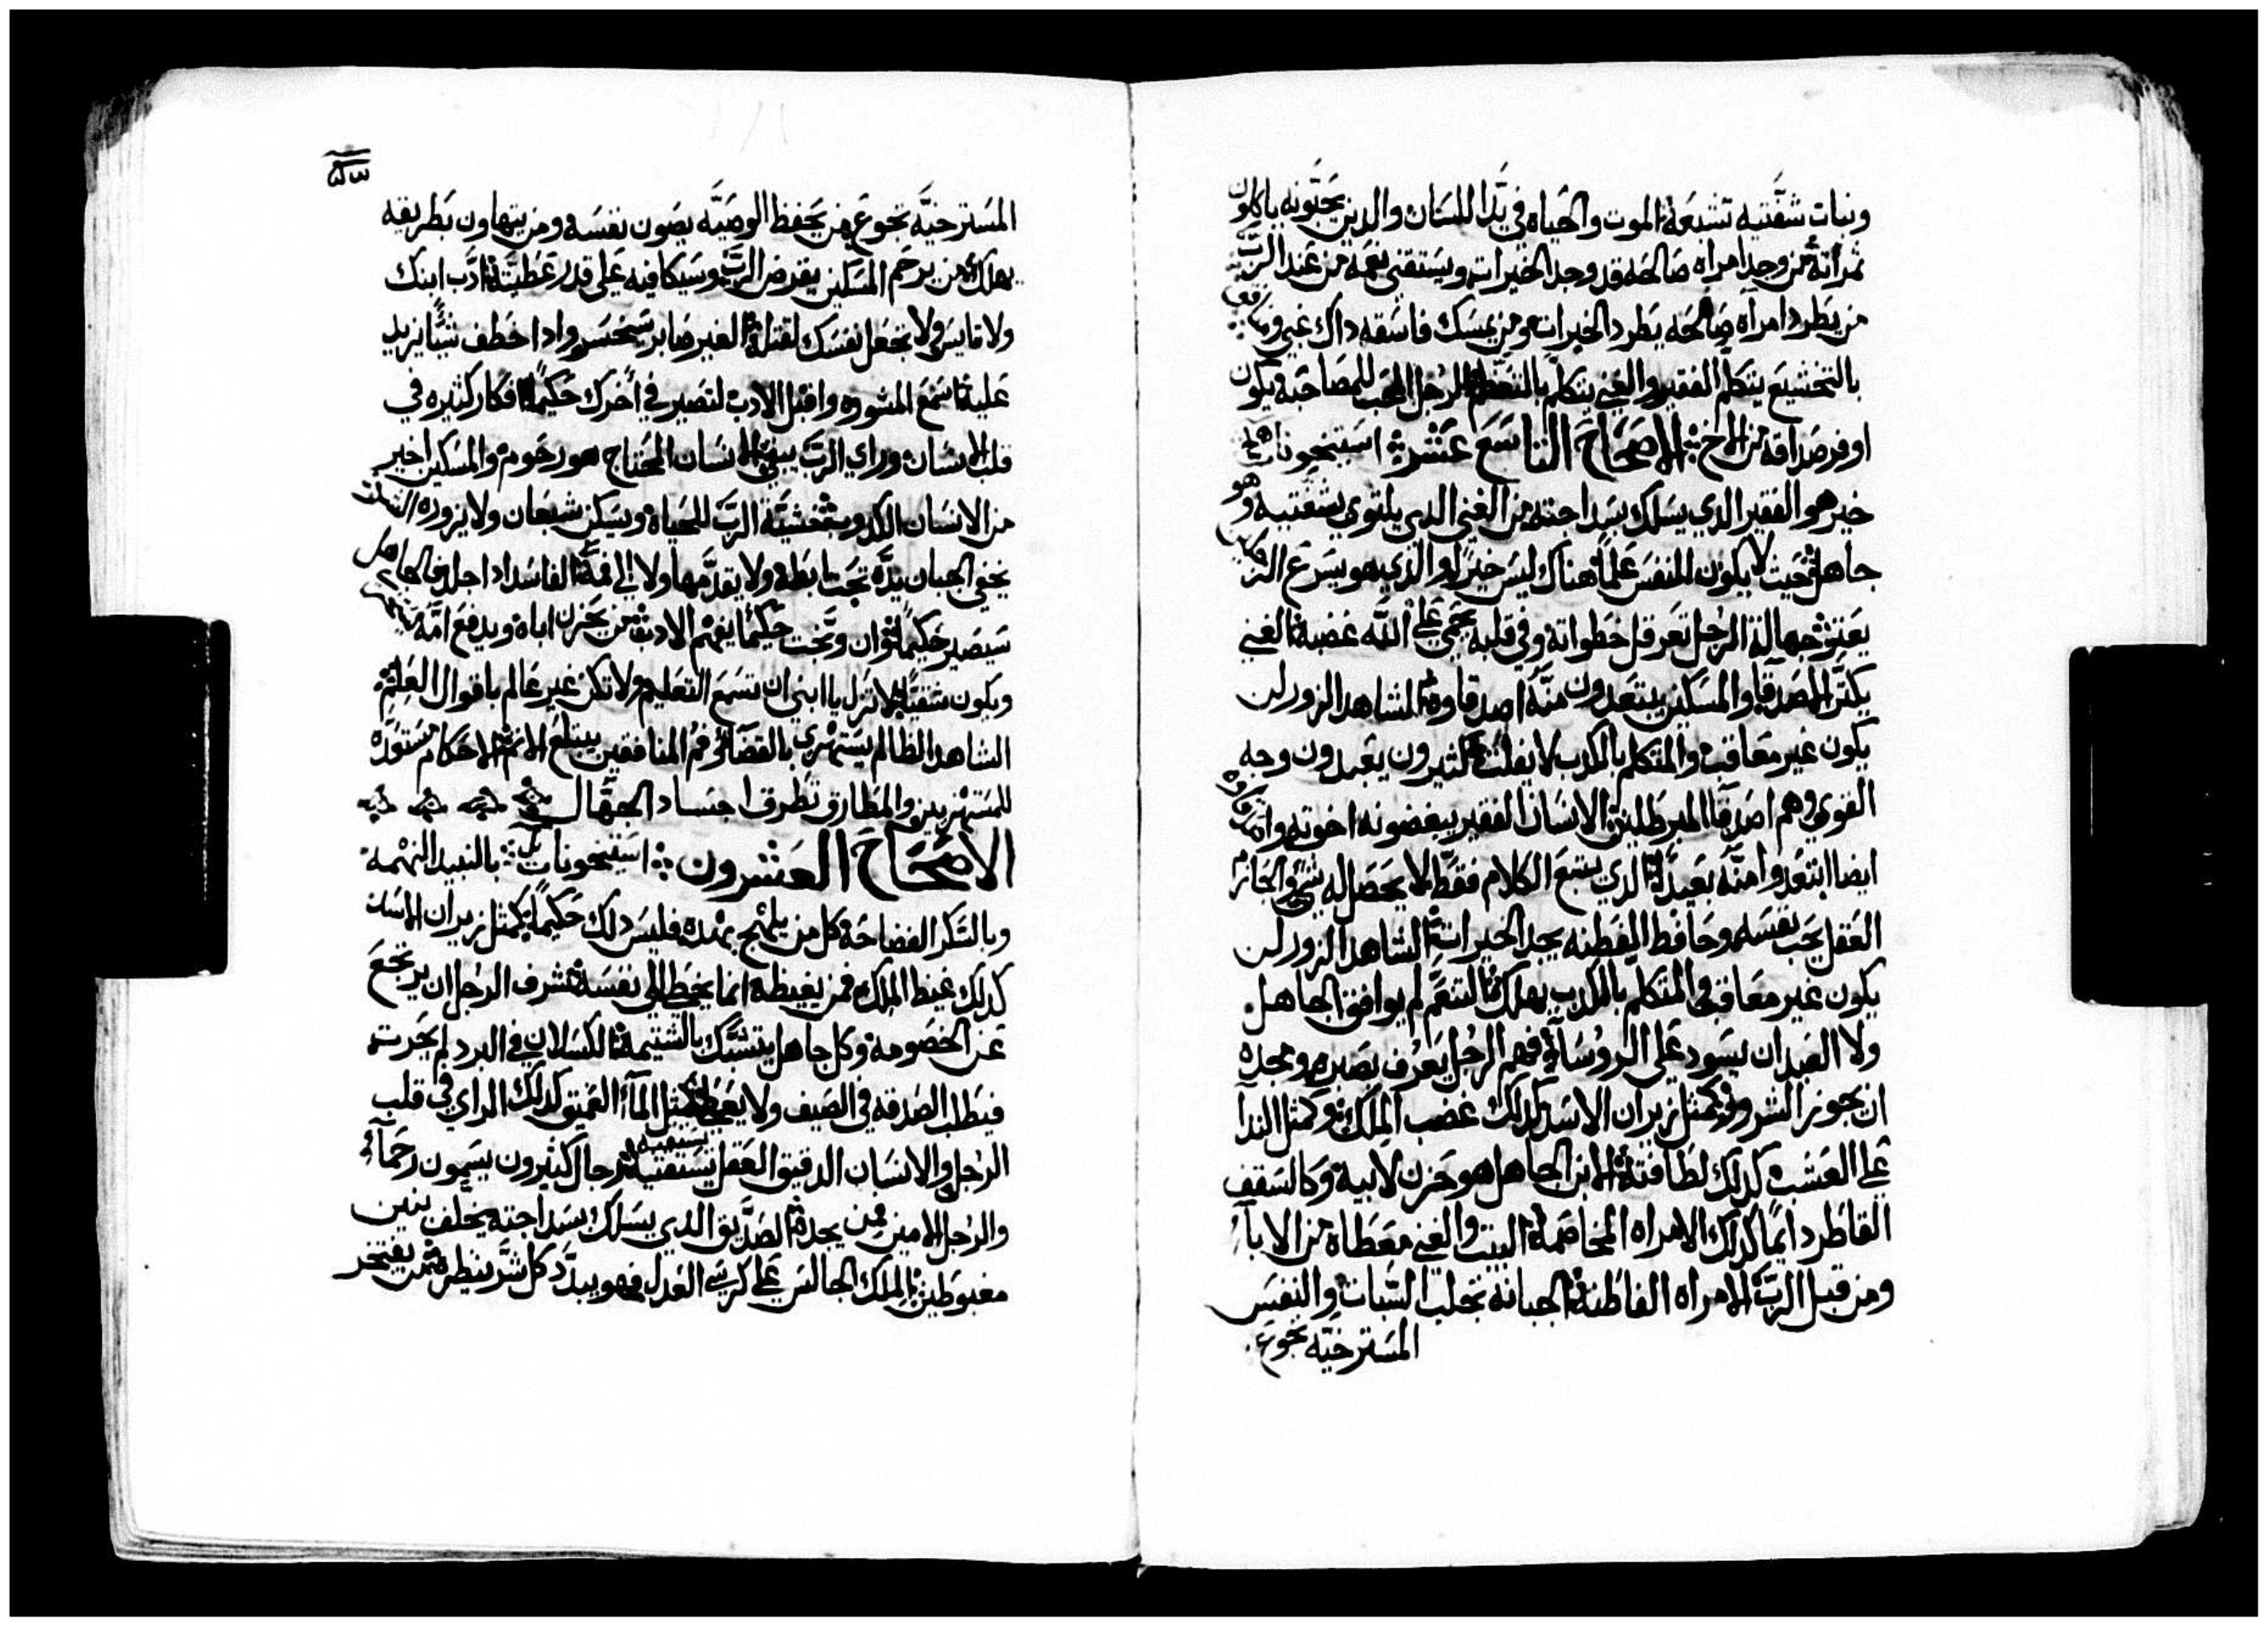 ونبات شفتيه تشبعه الموت والحياه في يدا اللسان والدين يحبونه ياكلون
ثمراته من وجد امراه صالحه قد وجد الخيرات ويستقني نعمه من عند الرب
من يطرد امراه صالحه يطرد الخيرات ومن يمسك فاسقه داك غبي ومنافق
بالتخشيع يتكلم الفقير والغني يتكلم بالتعظم الرجل المحب للمصاحبه يكون
اوفر صداقه من الاخ الاصحاح التاسع عشر استيخونات
خير هو الفقير الدي يسلك بسداجته من الغني الدي يلتوي بشفتيه وهو
جاهل حيث لا يكون للنفس علما هناك ليس خيرا والدي هو يسرع
يعتر جهالة الرجل تعرقل خطواته وفي قلبه يحمي علي الله غضبه الغني
يكثر الاصدقا والمسكين يبتعدون منه اصدقاوه الشاهد الزور لن
يكون غير معاقب والمتكلم بالكدب لا يفلت كثيرون يعبدون وجه
القوي وهم اصدقا المبرطلين الانسان الفقير يبغضونه اخوته واصدقاوه
ايضا ابتعدوا منه بعيدا الدي يتبع الكلام فقط لا يحصل له شي والحازم
العقل يحب نفسه وحافظ الفطنه يجد الخيرات الشاهد الزور لن
يكون غير معاقب والمتكلم بالكدب يهلك التنعم لم يوافق الجاهل
ولا العبد ان يسود علي الروسآ فهم الرجل يعرف بصبره ومجده
ان يجوز الشرور كمثل زيران الاسد كدلك غضب الملك وكمثل الندا
علي العشب كدلك لطافته الابن الجاهل هو حزن لابيه وكالسقف
القاطر دايما كدلك الامراه المخاصمه البيت والغني معطاه من الابآ
ومن قبل الرب الامراه الفاطنه الجبانه تجلب السبات والنفس
المسترخيه تجوع
المسترخيه تجوع من يحفظ الوصيه يصون نفسه ومن يتهاون بطريقه
يهلك من يرحم المسكين يقرض الرب وسيكافيه علي قدر عطيته ادب ابنك
ولا تايس ولا تجعل نفسك لقتله الغير صابر سيخسر وادا خطف شيا يزيد
عليه اسمع المشوره واقبل الادب لتصير في اخرك حكيما افكار كثيره في
قلب الانسان وراي الرب يبقي الانسان المحتاج هو رحوم والمسكين اخير
من الانسان الكدوب خشية الرب للحياه ويسكن شبعان ولا يزوره
يخفي الجبان يده تحت ابطه ولا يقدمها ولا الي فمه الفاسد ادا جلد فالجاهل
سيصير حكيما وان وبخت حكيما يفهم الادب من يحزن اباه ويدفع امه
ويكون شقيا لا تزل يا ابني ان تسمع التعليم ولا تكن غير عالم باقوال العلم
الشاهد الظالم يستهزي بالقضا وفم المنافقين يبتلع الاثم الاحكام مستعده
للمستهزيين والمطارق تطرق اجساد الجهال
الاصحاح العشرون استيخونات بالنبيد النهمه
وبالسكر الفضاحه كل من يلهج بهده فليس دلك حكيما كمثل زيران الاسد
كدلك غيظ الملك فمن يغيظه انما يخطي الي نفسه شرف الرجل ان يرتجع
عن الخصومه وكل جاهل يتشبك بالشتيمه الكسلان في البرد لم يحرت
فيطلب الصدقه في الصيف ولا يعطي كمثل المآ العميق كدلك الراي في قلب
الرجل والانسان الدقيق العقل يستقيه رجال كثيرون يسمون رحمآ
والرجل الامين فمن يجده الصديق الدي يسلك بسداجته يخلف بنين
مغبوطين الملك الجالس علي كرسي العدل فهو يبدد كل شر بنظره من يفتخر